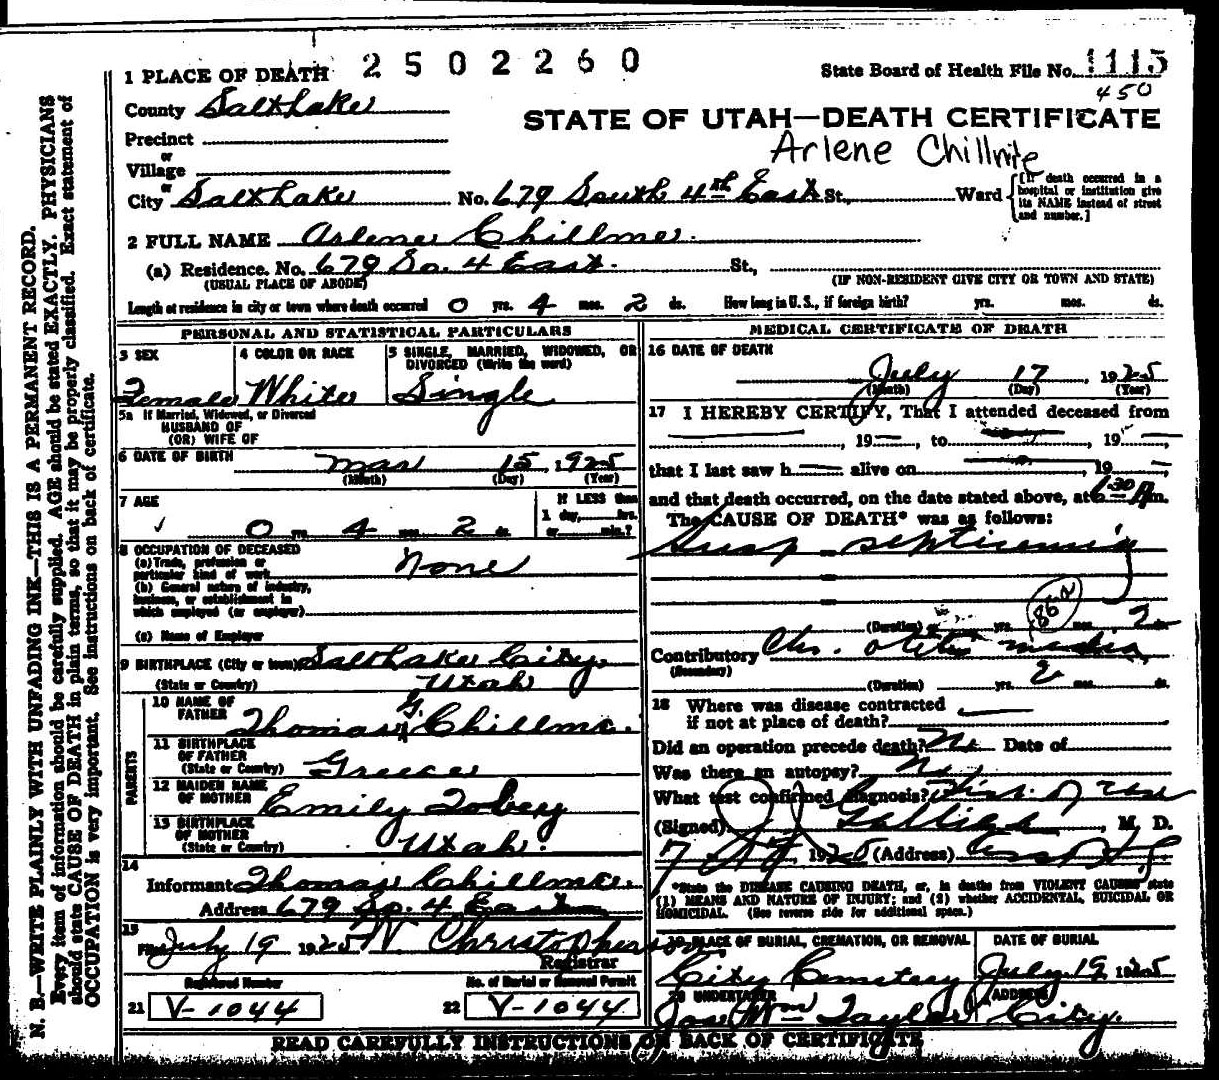 2502260
1 PLACE OF DEATH
State Board of Health File No. 1115
450
County Salt Lake
STATE OF UTAH—DEATH CERTIFICATE
Precinct
Arlene Chillmie
or
Village
or
City Salt Lake No. 679 South 4th East St., Ward
[If death occurred in a
hospital or institution give
its NAME instead of street
and number.]
2 FULL NAME Arlene Chillme.
(a) Residence. No. 679 So. 4 East. St.,
(USUAL PLACE OF ABODE)
(IF NON-RESIDENT GIVE CITY OR TOWN AND STATE)
Length of residence in city or town where death occurred 0 yrs. 4 mos. 2 ds. How long in U. S., if foreign birth? yrs. mos. ds.
PERSONAL AND STATISTICAL PARTICULARS
3 SEX
Female
4 COLOR OR RACE
White
5 SINGLE, MARRIED, WIDOWED, OR
DIVORCED (Write the word)
Single
5a If Married, Widowed, or Divorced
HUSBAND OF
(OR) WIFE OF
6 DATE OF BIRTH Mar 15, 1925
(Month) (Day) (Year)
7 AGE
0 yrs. 4 mos. 2 ds.
If LESS than
1 day, hrs.
or min.?
8 OCCUPATION OF DECEASED
(a) Trade, profession or
particular kind of work None
(b) General nature of industry,
business, or establishment in
which employed (or employer)
(c) Name of Employer
9 BIRTHPLACE (City or town) Salt Lake City.
(State or Country) Utah
PARENTS
10 NAME OF
FATHER Thomas G. Chillme.
11 BIRTHPLACE
OF FATHER
(State or Country) Greece
12 MAIDEN NAME
OF MOTHER Emily Tobey
13 BIRTHPLACE
OF MOTHER
(State or Country) Utah.
14
Informant Thomas Chillme.
Address 679 So. 4 East
15
Filed July 19 1925 W. Christopherson
Registrar
Registered Number
21 V-1044
No. of Burial or Removal Permit
22 V-1044
MEDICAL CERTIFICATE OF DEATH
16 DATE OF DEATH
July 17, 1925
(Month) (Day) (Year)
17 I HEREBY CERTIFY, That I attended deceased from
, 19 , to , 19
that I last saw h alive on , 19
and that death occurred, on the date stated above, at 6 30 A m.
The CAUSE OF DEATH* was as follows:
septicemia
862
(Duration) yrs. mos. 2 ds.
Contributory Chr. otitis media,
(Secondary)
(Duration) yrs. 2 mos. ds.
18 Where was disease contracted
if not at place of death?
Did an operation precede death? No Date of
Was there an autopsy? No
What test confirmed diagnosis?
(Signed) , M. D.
1925 (Address)
*State the DISEASE CAUSING DEATH, or, in deaths from VIOLENT CAUSES, state
(1) MEANS AND NATURE OF INJURY; and (2) whether ACCIDENTAL, SUICIDAL OR
HOMICIDAL. (See reverse side for additional space.)
19 PLACE OF BURIAL, CREMATION, OR REMOVAL
City Cemetery
DATE OF BURIAL
July 19 1925
20 UNDERTAKER
Jos Wm Taylor
ADDRESS
City.
READ CAREFULLY INSTRUCTIONS ON BACK OF CERTIFICATE
N. B.—WRITE PLAINLY WITH UNFADING INK—THIS IS A PERMANENT RECORD.
Every item of information should be carefully supplied. AGE should be stated EXACTLY. PHYSICIANS
should state CAUSE OF DEATH in plain terms, so that it may be properly classified. Exact statement of
OCCUPATION is very important. See instructions on back of certificate.